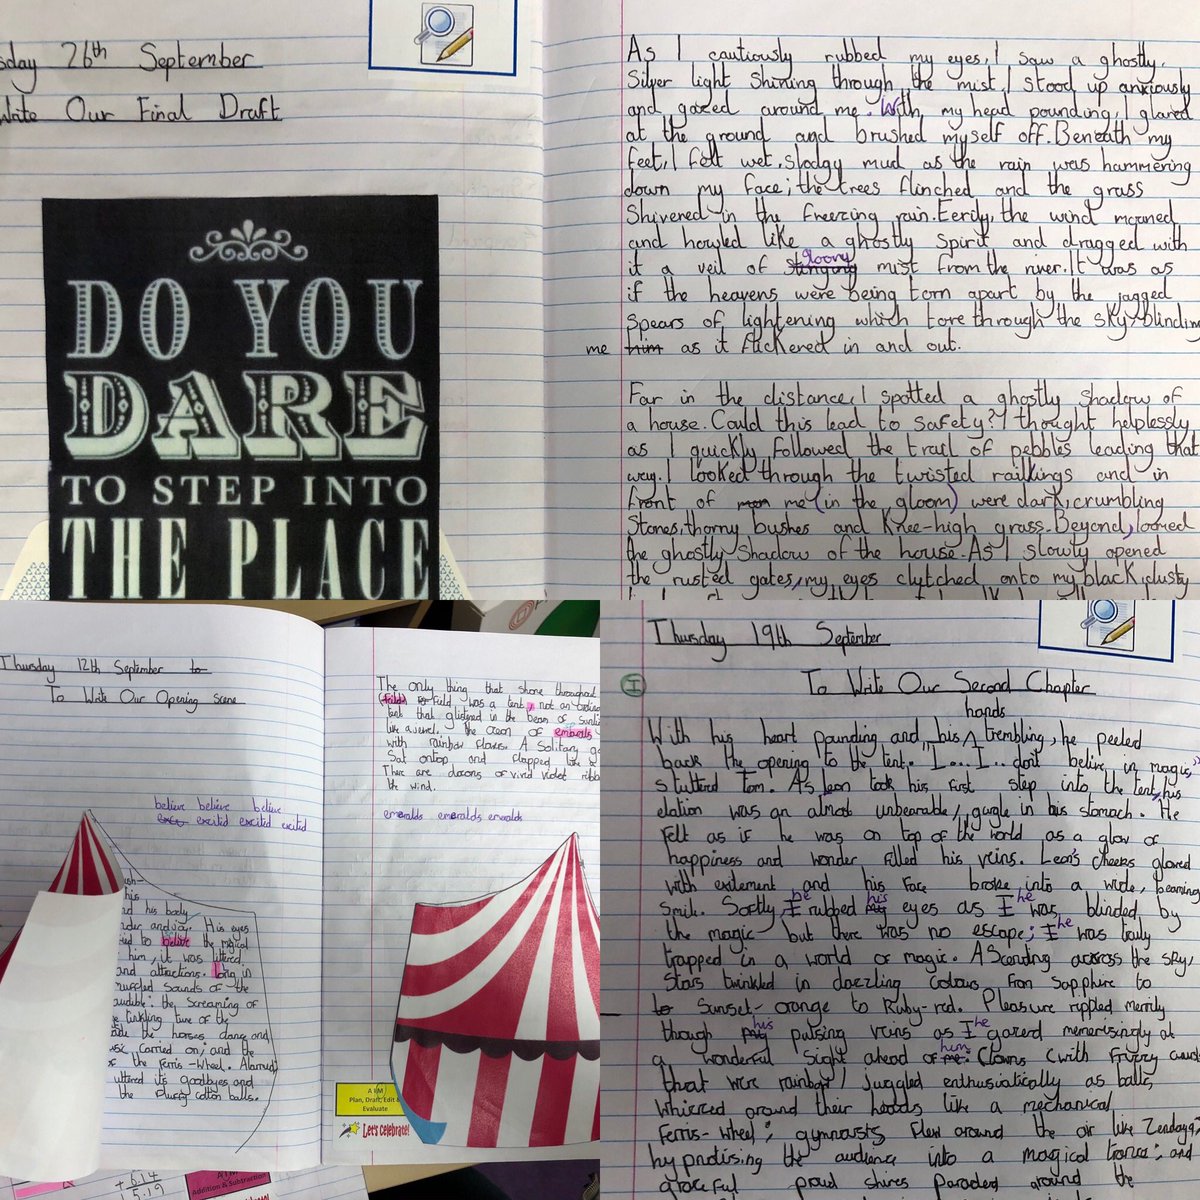 sday 26th September
Write Our Final Draft
DO YOU
DARE
TO STEP INTO
THE PLACE
As I cautiously rubbed my eyes, I saw a ghostly,
silver light shining through the mist. I stood up anxiously
and gazed around me. With my head pounding, I glared
at the ground and brushed myself off. Beneath my
feet, I felt wet, slodgy mud as the rain was hammering
down my face; the trees flinched and the grass
shivered in the freezing rain. Eerily, the wind moaned
and howled like a ghostly spirit and dragged with
gloomy
it a veil of stinging mist from the river. It was as
if the heavens were being torn apart by the jagged
spears of lightening which tore through the sky-blinding
me him as it flickered in and out.
Far in the distance, I spotted a ghostly shadow of
a house. Could this lead to safety? I thought helplessly
as I quickly followed the trail of pebbles leading that
way. I looked through the twisted railkings and in
front of me (in the gloom) were dark, crumbling
stones, thorny bushes and knee-high grass. Beyond, loomed
the ghostly shadow of the house. As I slowly opened
the rusted gates, my eyes clytched onto my black, dusty
Thursday 12th September to
To Write Our Opening Scene
believe believe believe
excited excited excited
ush-
his
nd his body
nder and joy. His eyes
ied to believe the magical
him, it was littered
and attractions. Long in
muffled sounds of the
audible: the screaming of
e tinkling tune of the
ade the horses dance and
usic carried on; and the
of the Ferris-Wheel. Alarmed,
uttered it's goodbyes and
the fluffy cotton balls.
The only thing that shone throughout
field was a tent, not an ordina
tent that glistened in the beam of sunli
like a jewel. The ocean of emeralds
with rainbow flowers. A solitary
sat ontop and flapped like a
There are dozens of vivid violet ribb
the wind.
emeralds emeralds emeralds
A I M
Plan, Draft, Edit &
Evaluate
Let's Celebrate!
A I M
Addition & Subtraction
Thursday 19th September
I
To Write Our Second Chapter
hands
With his heart pounding and his trembling, he peeled
back the opening to the tent. "I...I.. don't believe in magic,"
stuttered Tom. As Leon took his first step into the tent, his
elation was an almost unbearable, gurgle in his stomach. He
felt as if he was on top of the world as a glow of
happiness and wonder filled his veins. Leon's cheeks glowed
with exitement and his face broke into a wide, beaming
he his he
smile. Softly, I rubbed my eyes as I was blinded by
he
the magic but there was no escape; I was truly
trapped in a world of magic. Ascending across the sky,
stars twinkled in dazzling colours from Sapphire to
to Sunset-orange to Ruby-red. Pleasure rippled merrily
his he
though my pulsing veins as I gazed memerisingly at
him
a wonderful sight ahead of me. Clowns (with frizzy
that were rainbow) juggled enthusiatically as balls
whizzed around their heads like a mechanical
Ferris-wheel; gymnasts flew around the air like Zendaya,
hypnotising the audience into a magical trance; and
graceful proud shires paraded around the